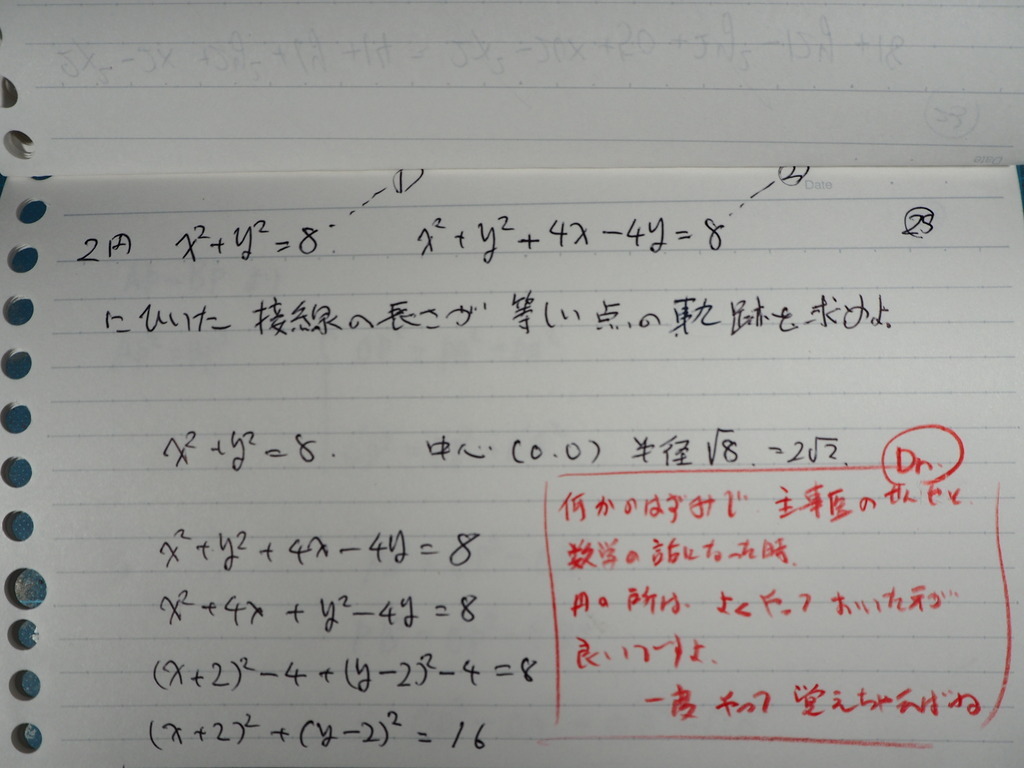 ① ② Date
2円 x²+y²=8 x²+y²+4x-4y=8 ㉕
にひいた接線の長さが等しい点の軌跡を求めよ。
x²+y²=8. 中心(0.0) 半径√8.=2√2.
Dr.
何かのはずみで 主事医のせんせと
x²+y²+4x-4y=8
数学の話になった時.
x²+4x+y²-4y=8
円の所は、よくやっておいた方が
良いですよ.
(x+2)²-4+(y-2)²-4=8
一度やって覚えちゃえばね
(x+2)²+(y-2)²=16